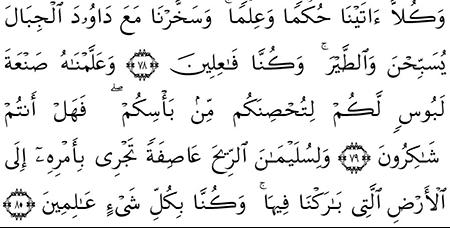 وَكُلًّا ءَاتَيْنَا حُكْمًا وَعِلْمًا ۚ وَسَخَّرْنَا مَعَ دَاوُۥدَ ٱلْجِبَالَ
يُسَبِّحْنَ وَٱلطَّيْرَ ۚ وَكُنَّا فَٰعِلِينَ ﴿٧٨﴾ وَعَلَّمْنَٰهُ صَنْعَةَ
لَبُوسٍ لَّكُمْ لِتُحْصِنَكُم مِّنۢ بَأْسِكُمْ ۖ فَهَلْ أَنتُمْ
شَٰكِرُونَ ﴿٧٩﴾ وَلِسُلَيْمَٰنَ ٱلرِّيحَ عَاصِفَةً تَجْرِى بِأَمْرِهِۦٓ إِلَى
ٱلْأَرْضِ ٱلَّتِى بَٰرَكْنَا فِيهَا ۚ وَكُنَّا بِكُلِّ شَىْءٍ عَٰلِمِينَ ﴿٨٠﴾